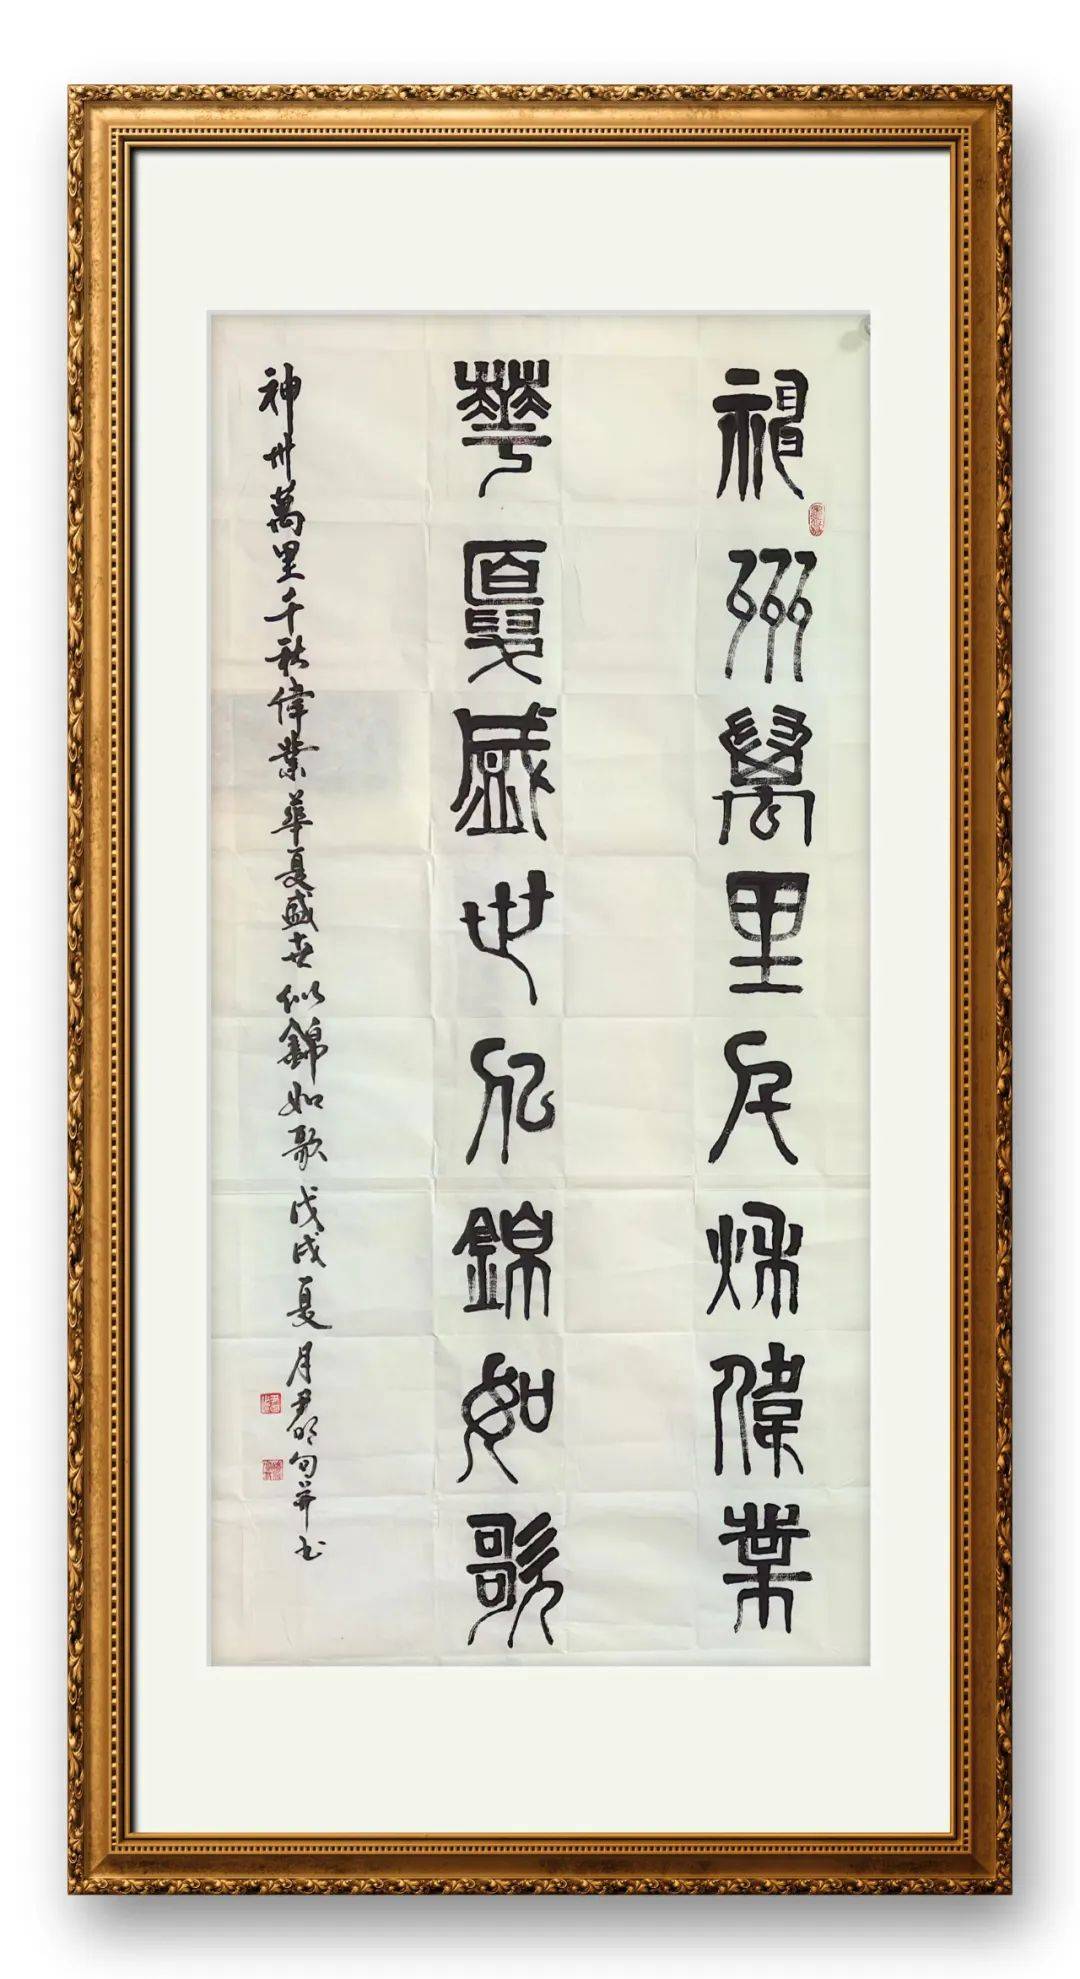 神州萬里千秋偉業
華夏盛世似錦如歌
神州萬里千秋偉業華夏盛世似錦如歌 戊戌夏月尹 句并书